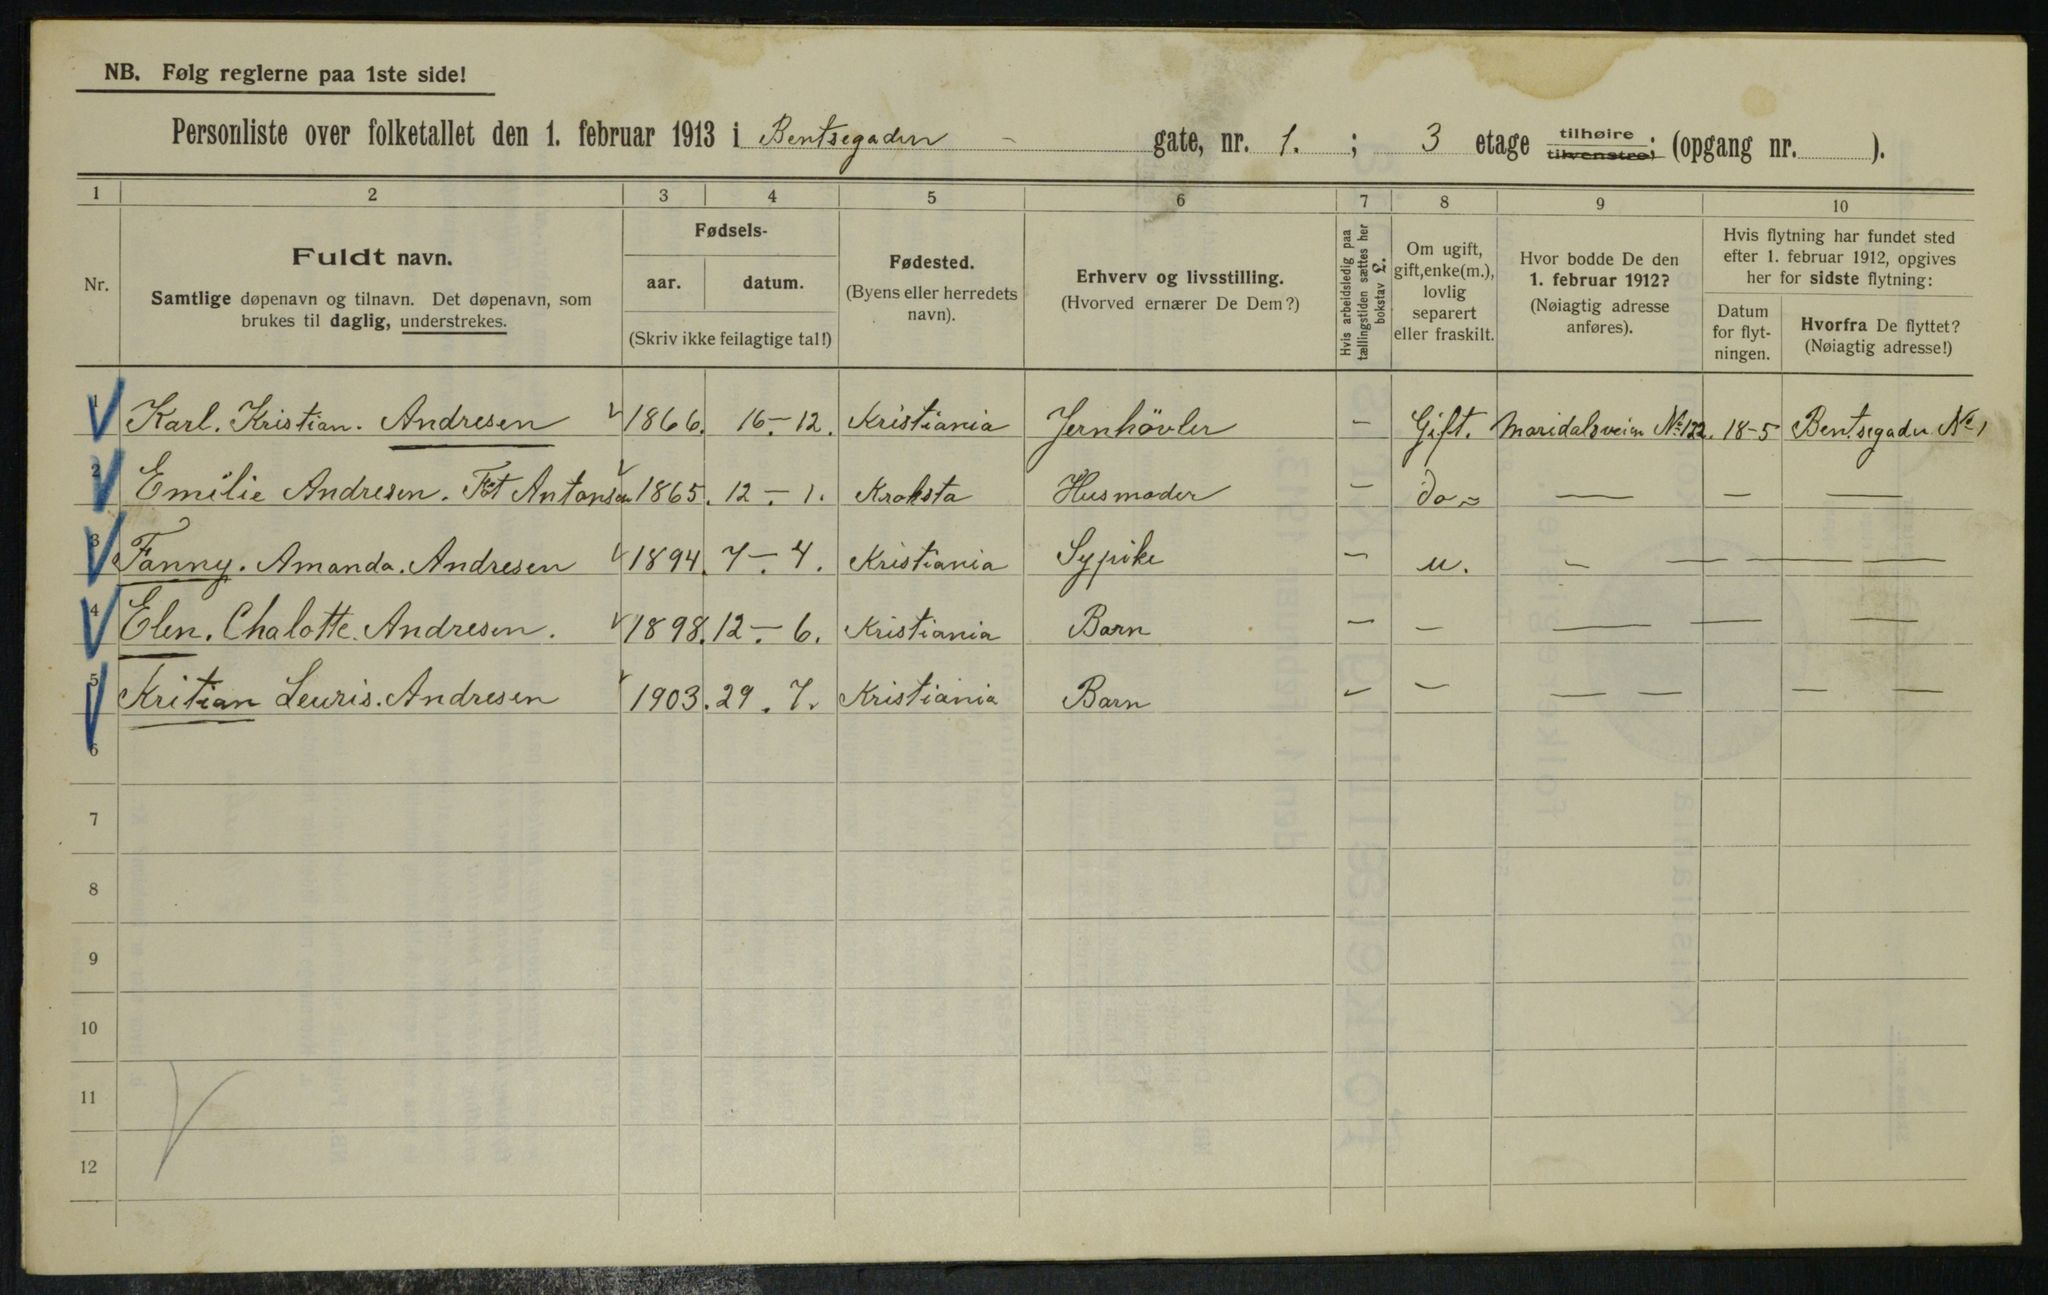 NB. Følg reglerne paa 1ste side!
Personliste over folketallet den 1. februar 1913 i Bentsegaden - gate, nr. 1. ; 3 etage tilhøire tilvenstre; (opgang nr. ).
1 2 3 4 5 6 7 8 9 10
Nr.
Fuldt navn.
Samtlige døpenavn og tilnavn. Det døpenavn, som
brukes til daglig, understrekes.
Fødsels-
aar. datum.
(Skriv ikke feilagtige tal!)
Fødested.
(Byens eller herredets
navn).
Erhverv og livsstilling.
(Hvorved ernærer De Dem?)
Hvis arbeidsledig paa
tællingstiden sættes her
bokstav L.
Om ugift,
gift, enke(m.),
lovlig
separert
eller fraskilt.
Hvor bodde De den
1. februar 1912?
(Nøiagtig adresse
anføres).
Hvis flytning har fundet sted
efter 1. februar 1912, opgives
her for sidste flytning:
Datum
for flyt-
ningen.
Hvorfra De flyttet?
(Nøiagtig adresse!)
1 Karl. Kristian. Andresen 1866. 16 - 12. Kristiania Jernhövler - Gift. Maridalsveien No 122. 18-5 Bentsegaden No 1
2 Emilie Andresen. Föt Antonsen 1865. 12 - 1. Kroksta Husmoder - do - — - —
3 Fanny. Amanda. Andresen 1894. 7 - 4. Kristiania Sypike - u. - — — —
4 Elen. Chalotte. Andresen. 1898. 12 - 6. Kristiania Barn - - — — —
5 Kritian Leuris. Andresen 1903. 29. 7. Kristiania Barn - - — — — —
6
7
8
9
10
11
12